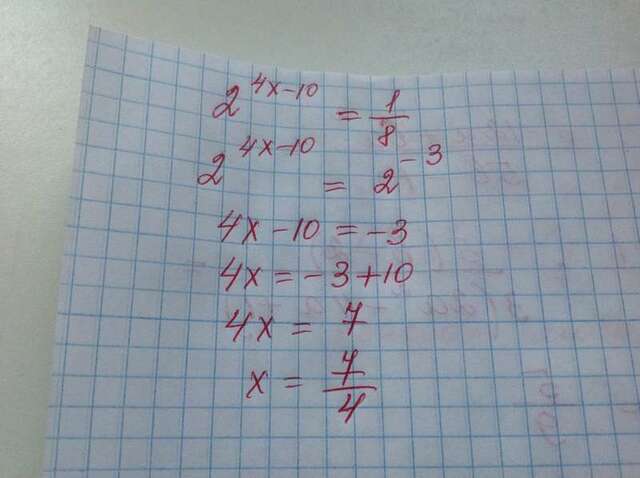 2^{4x-10} = \frac{1}{8}
2^{4x-10} = 2^{-3}
4x-10 = -3
4x = -3+10
4x = 7
x = \frac{7}{4}